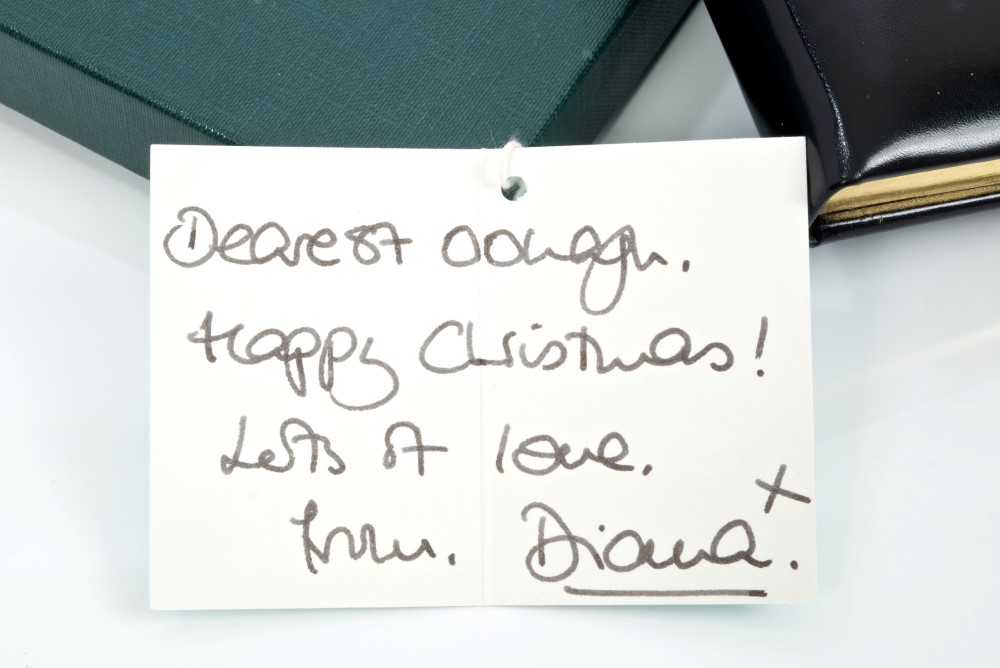 Dearest Oonagh.
Happy Christmas!
Lots of love.
from. Diana. x